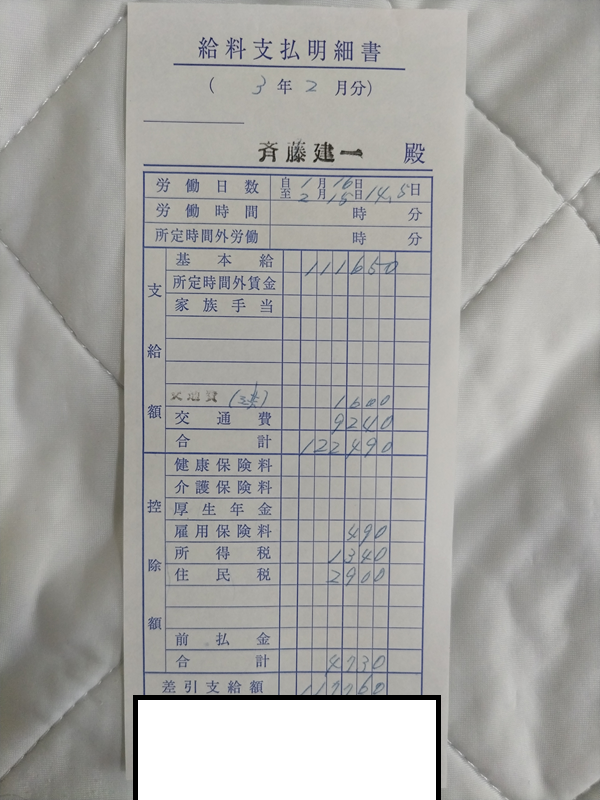 給料支払明細書
( 3年 2月分)
斉藤建一 殿
労働日数 自 1月16日 至 2月15日 14.5日
労働時間 時 分
所定時間外労働 時 分
支給額
基本給 111650
所定時間外賃金
家族手当
交通費 1600
交通費 9240
合計 122490
控除額
健康保険料
介護保険料
厚生年金
雇用保険料 490
所得税 1340
住民税 2900
前払金
合計 4730
差引支給額 117760